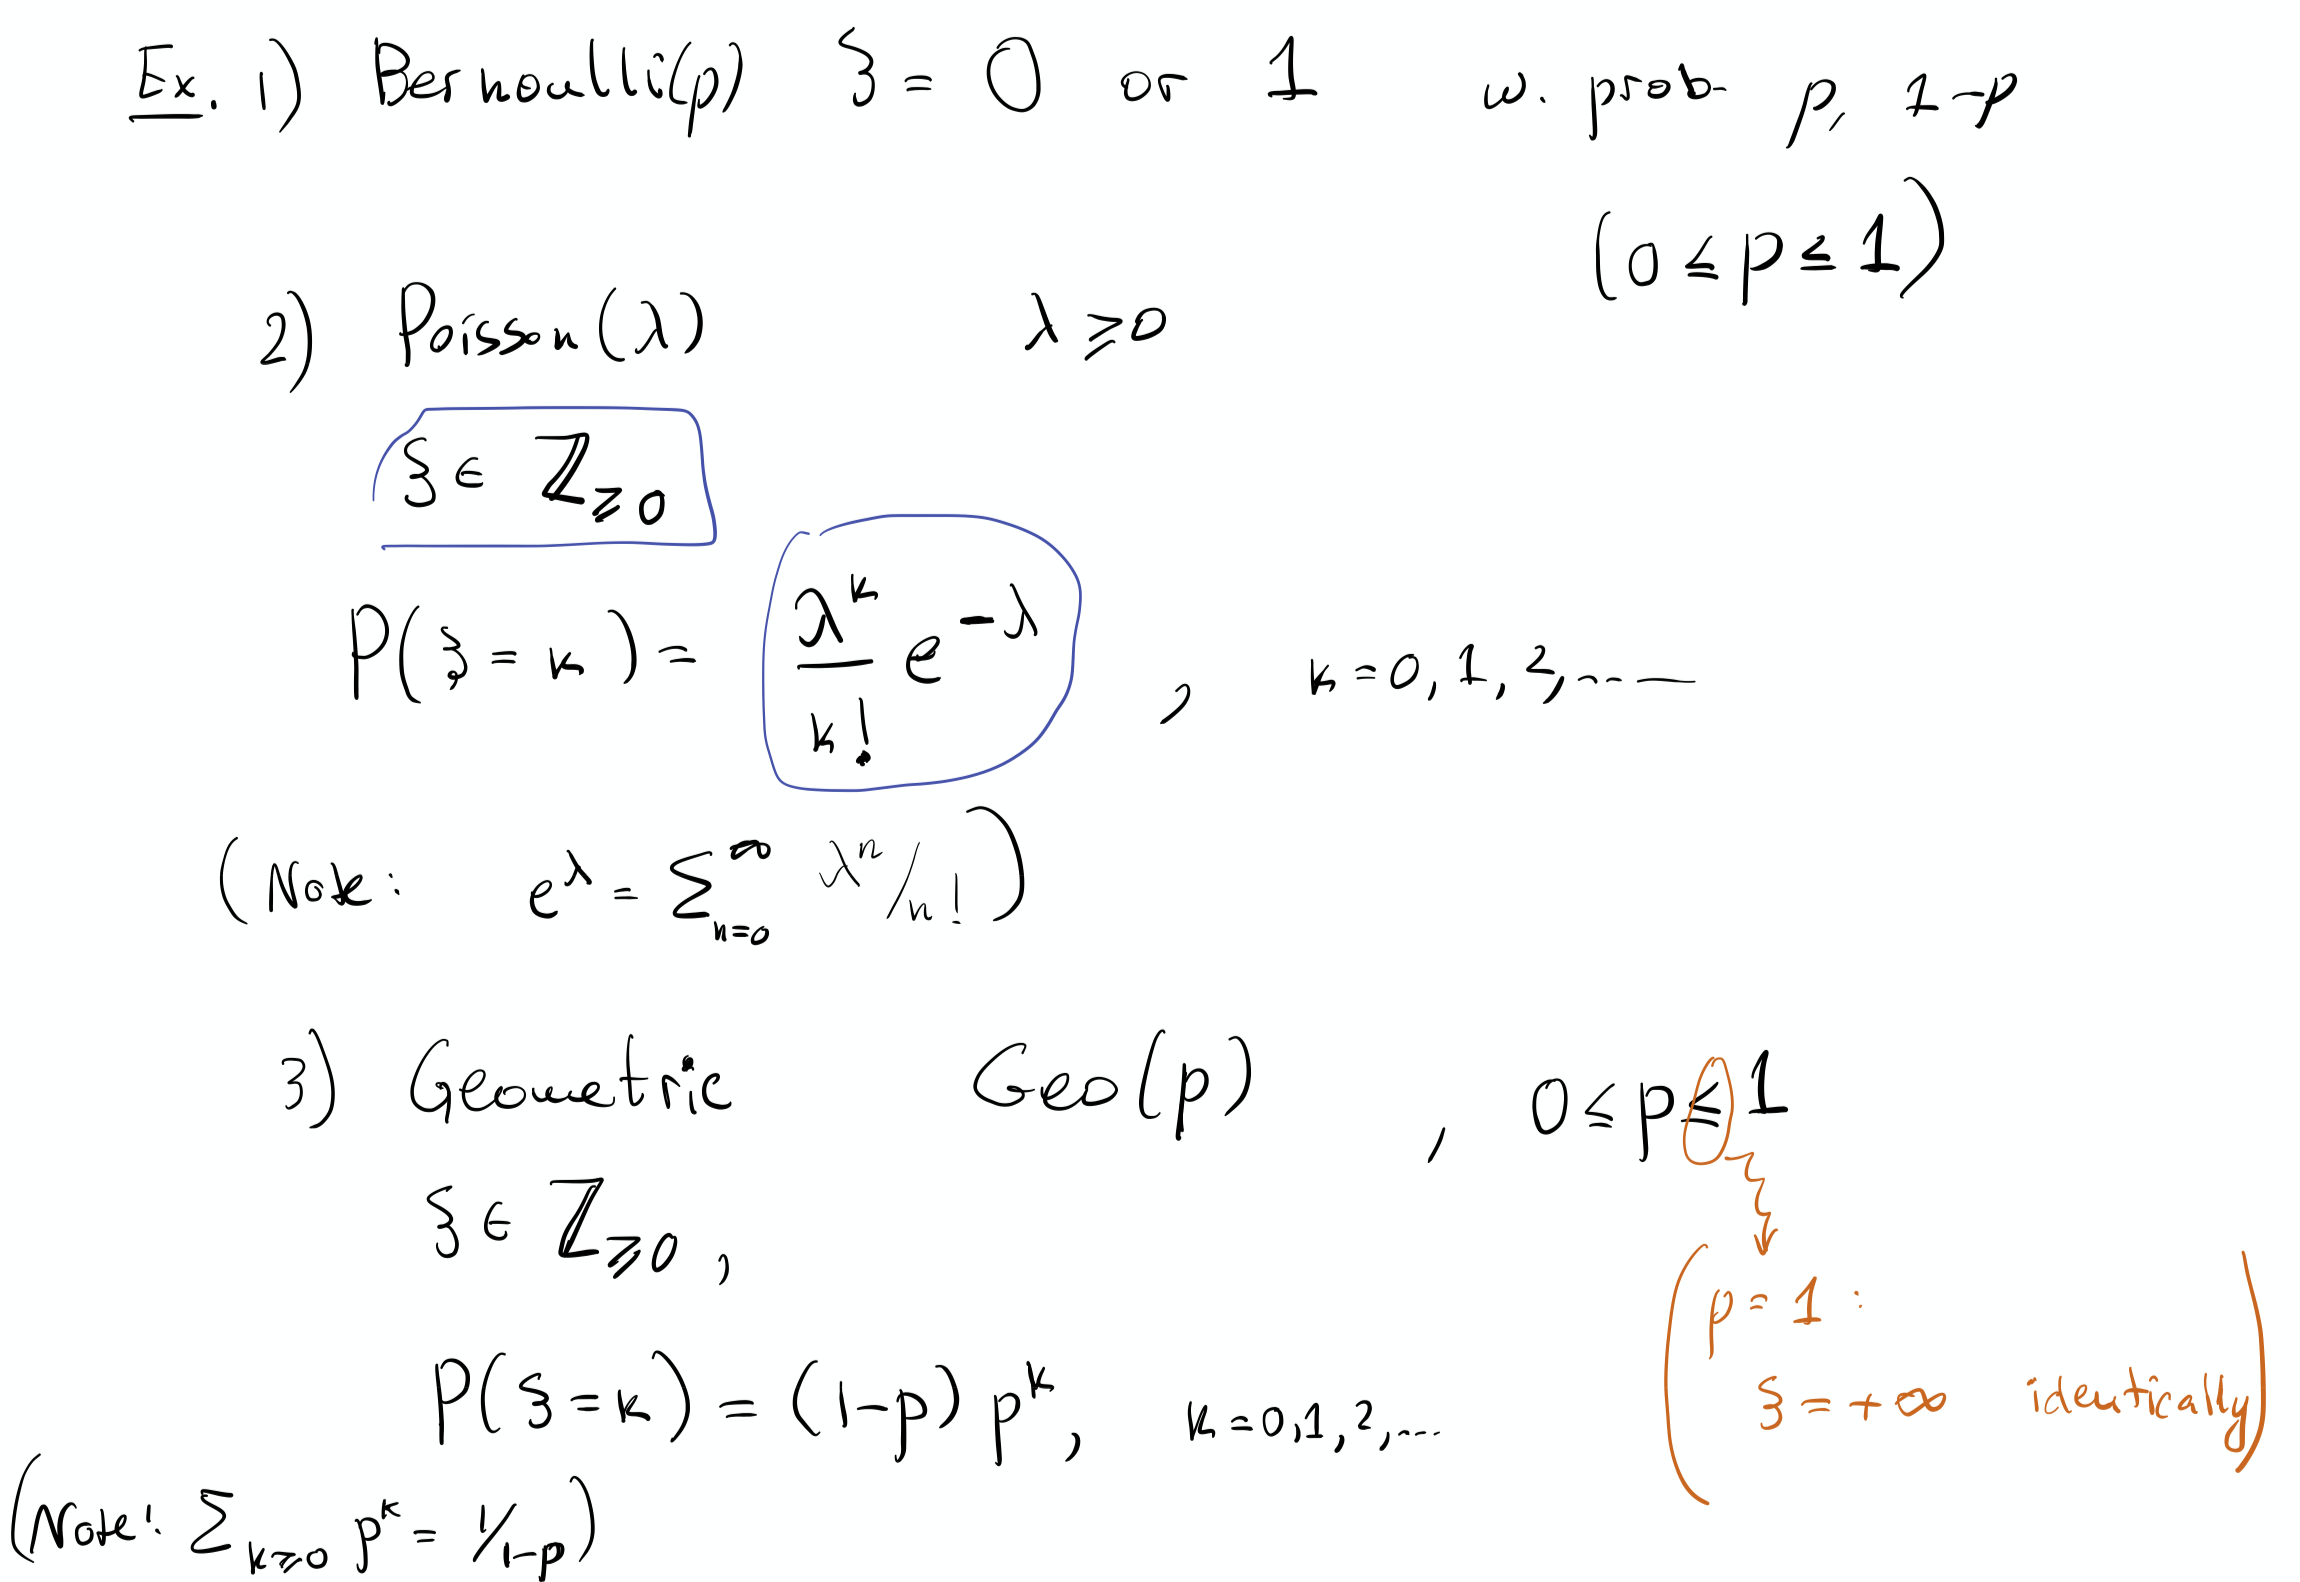 Ex. 1) Bernoulli(p) ξ = 0 or 1 w. prob p, 1-p
(0 ≤ p ≤ 1)
2) Poisson(λ) λ ≥ 0
ξ ∈ ℤ≥0
P(ξ = k) = λ^k / k! e^{-λ} , k = 0, 1, 2, ...
(Note: e^λ = Σ_{n=0}^∞ λ^n/n!)
3) Geometric Geo(p) , 0 ≤ p ≤ 1
ξ ∈ ℤ≥0 ,
(p = 1 :
ξ = +∞ identically)
P(ξ = k) = (1-p) p^k , k = 0, 1, 2, ...
(Note: Σ_{k≥0} p^k = 1/1-p)